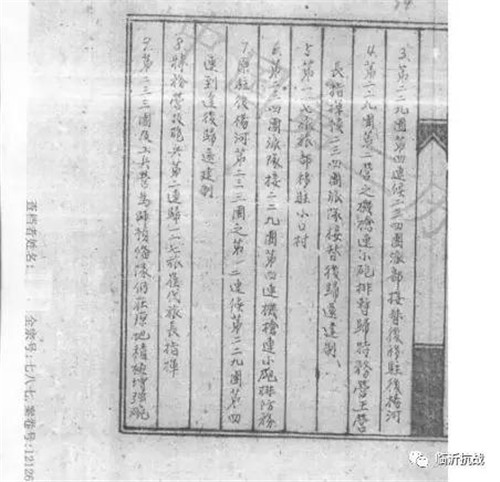 3、第二二九團第四連俟二三四團派部接替後移駐後楊河
4、第二二九團第二營之機槍連小砲排暫歸特務營王營
長指揮俟二三四團派隊接替後歸還建制、
5、第一一七旅旅部移駐小口村
6、第二三四團派隊接二二九團第四連機槍連小砲排防務
7、原駐後楊河第二三三團之第一二連俟第二二九團第四
連到達後歸還建制
8、特務營及砲兵第二連歸一一七旅崔代旅長指揮
9、第二三三團及工兵營為師預備隊仍在原地積極增强
查档者姓名:
全宗号:七八七,案卷号:12126
临沂抗战